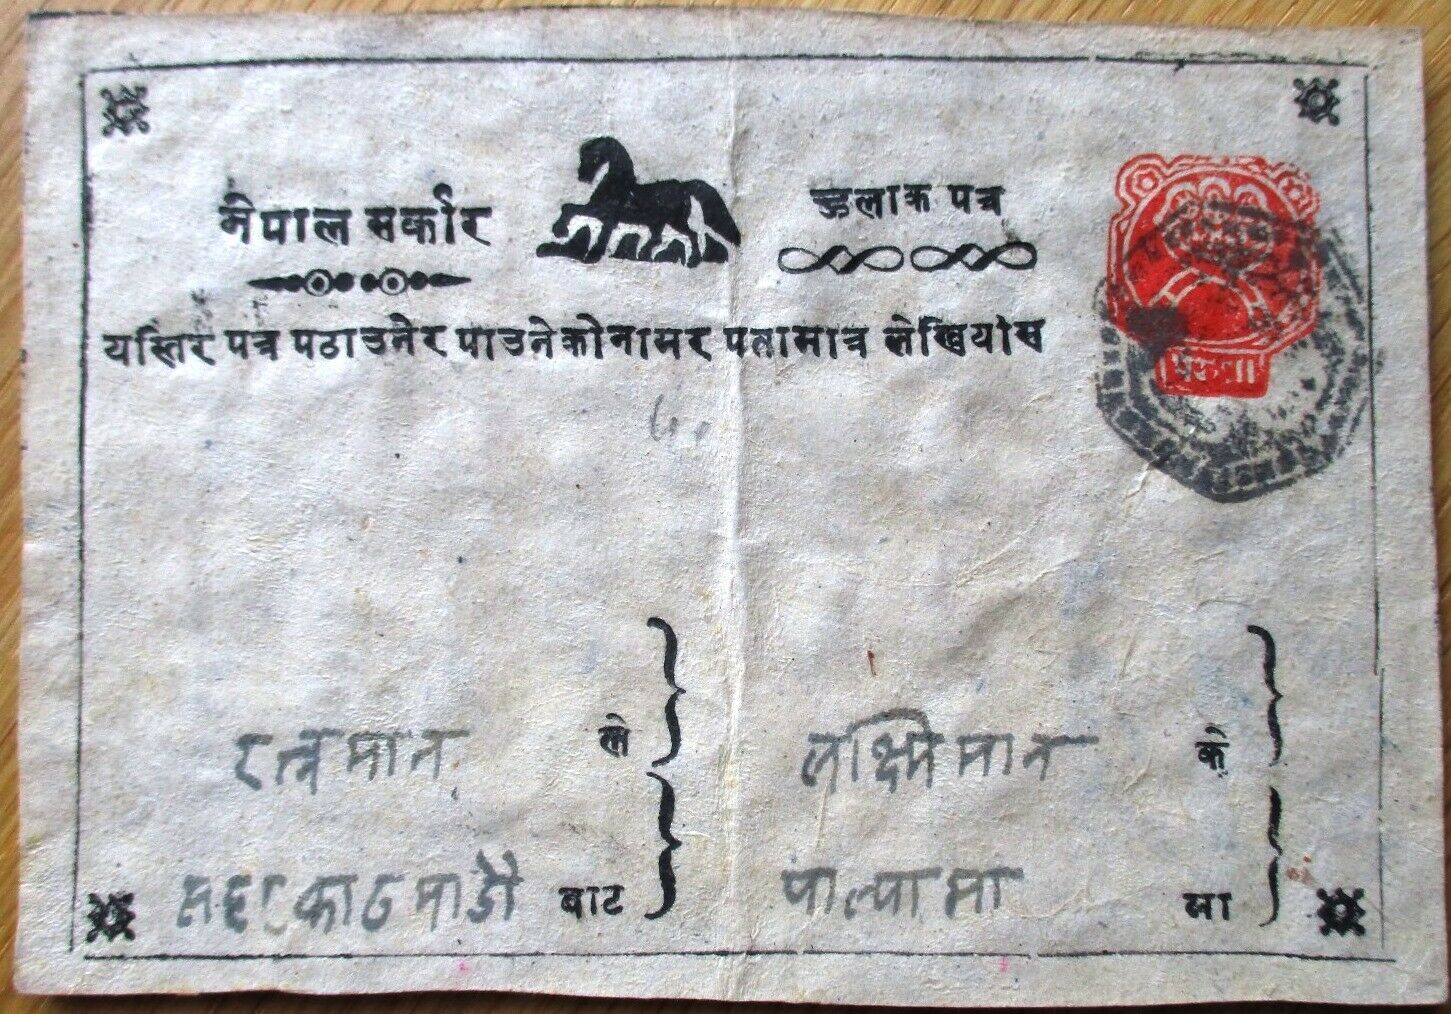 नेपाल सर्कार
हुलाक पत्र
यस्तिर पत्र पठाउनेर पाउनेको नामर पत्तामात्र लेखियोस
रत्नमान ले
लक्ष्मिमान के
सहर काठमाडौ बाट
पाल्पामा मा